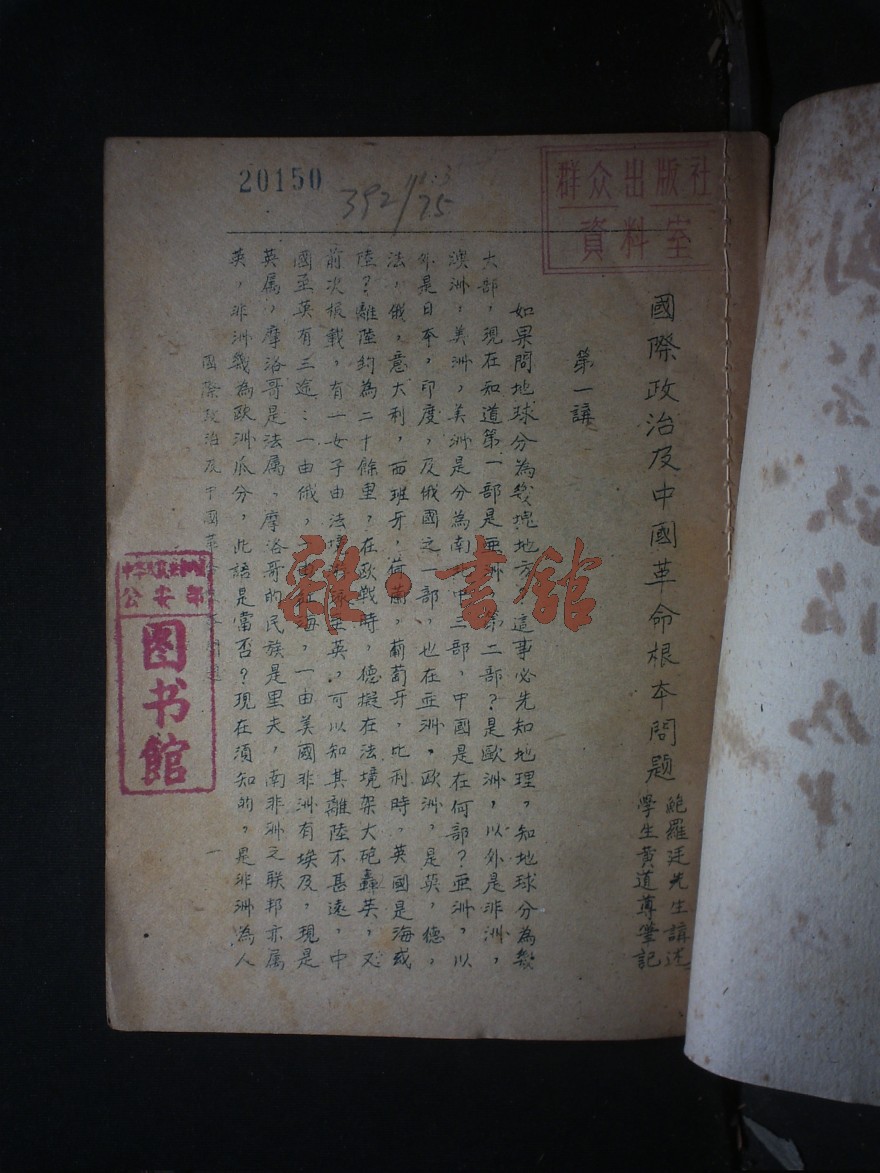 20150
392/75
群众出版社
資料室
國際政治及中國革命根本問題
鮑羅廷先生講述
學生黃道尊筆記
第一講
如果問地球分為幾塊地方？這事必先知地理，知地球分為幾
大部，現在知道第一部是亜洲，第二部？是歐洲，以外是非洲，
澳洲，美洲，美洲是分為南北中三部，中國是在何部？亜洲，以
外是日本，印度，及俄國之一部，也在亜洲，歐洲，是英，德，
法，俄，意大利，西班牙，荷蘭，葡萄牙，比利時，英國是海或
陸？離陸約為二十餘里，在欧戰時，德擬在法境架大砲轟英，又
前次报載，有一女子由法境至英，可以知其離陸不甚遠，中
國至英有三途：一由俄，一由紅海，一由美國非洲有埃及，現是
英属，摩洛哥是法属，摩洛哥的民族是里夫，南非洲之联邦亦属
英，非洲幾為歐洲瓜分，此語是當否？現在須知的，是非洲為人
國際政治及中國革命根本問題
一
公安部
图书馆
雜·書館